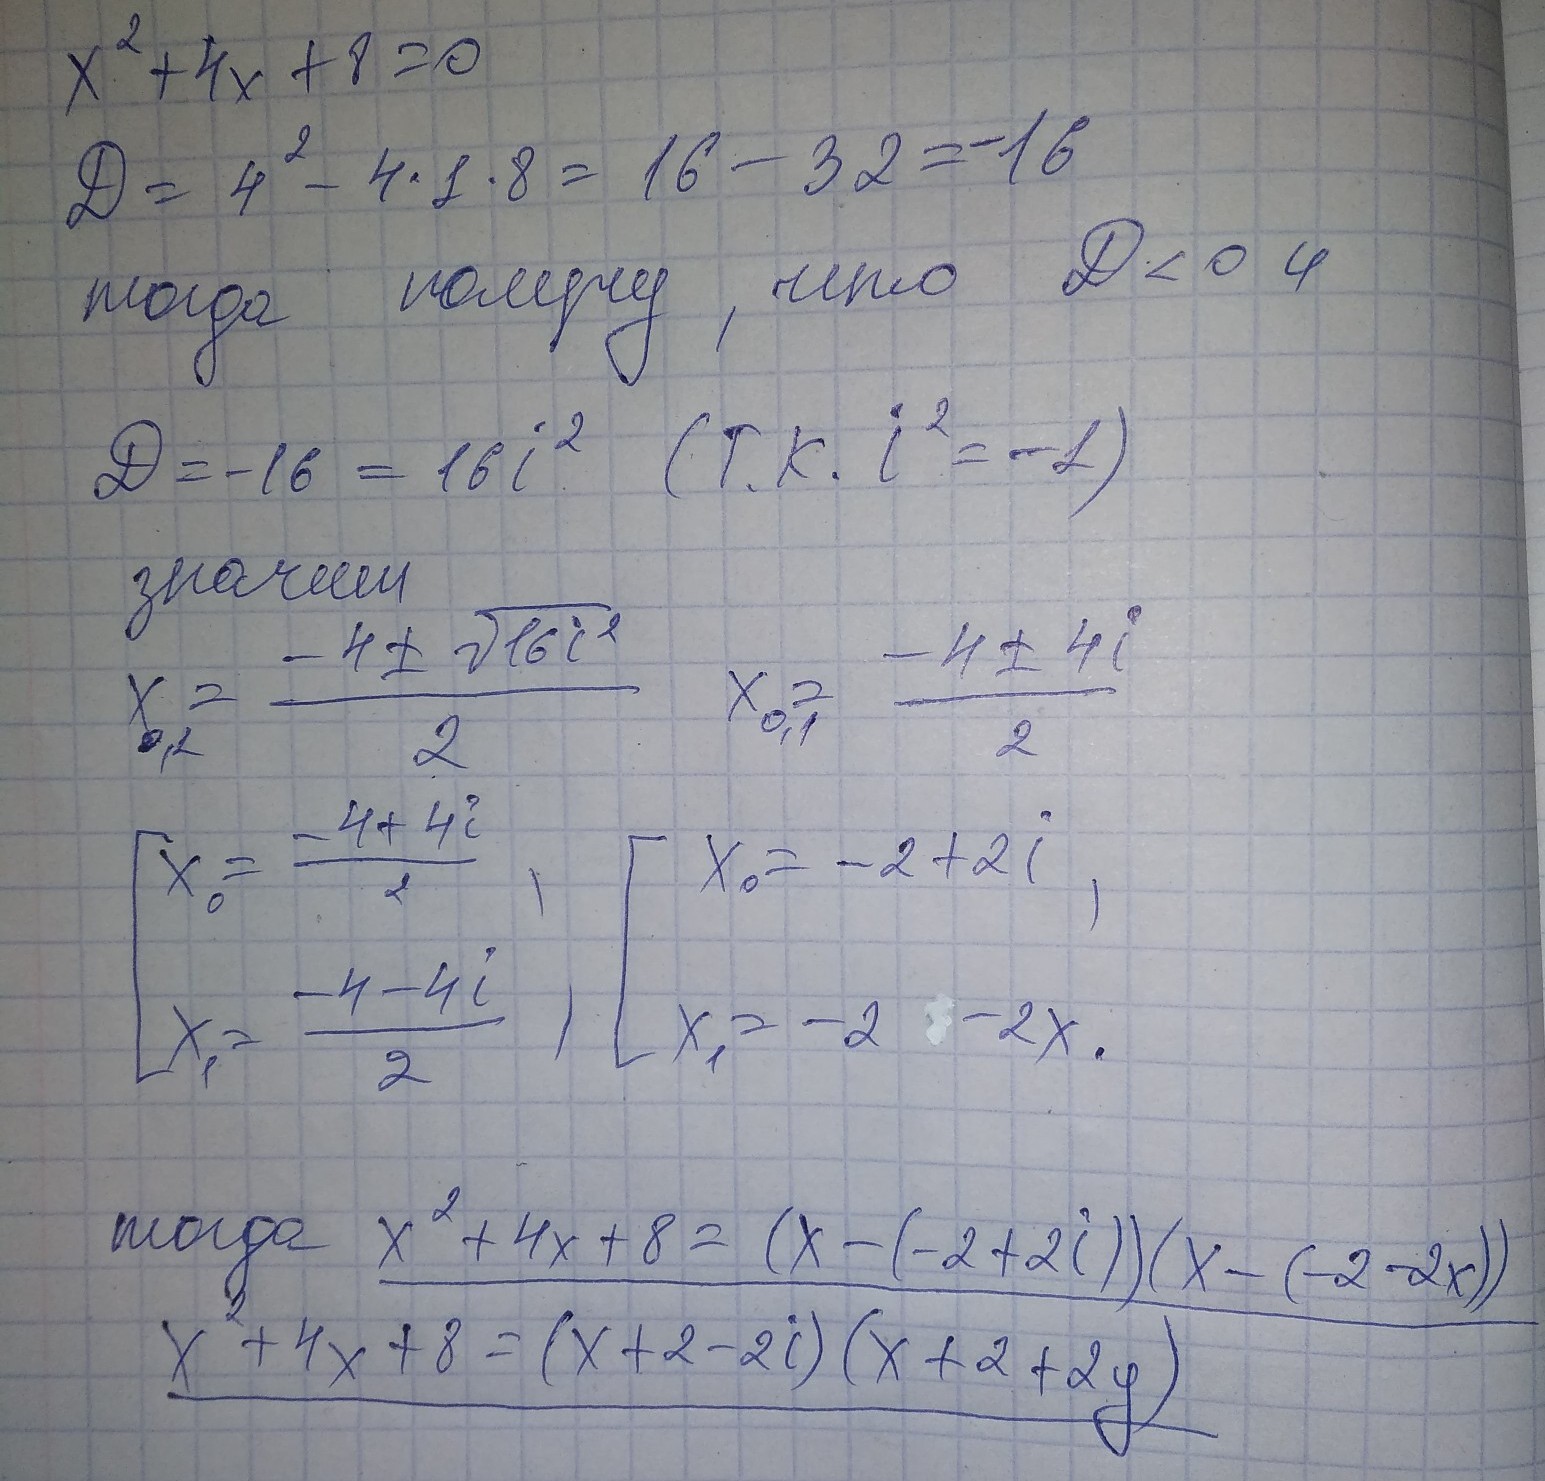 x² + 4x + 8 = 0
D = 4² - 4·1·8 = 16 - 32 = -16
тогда получу, что D < 0 и
D = -16 = 16i² (т.к. i² = -1)
значит
x₀,₂ = (-4 ± √16i²)/2 x₀,₁ = (-4 ± 4i)/2
[x₀ = (-4 + 4i)/2, [x₀ = -2 + 2i,
x₁ = (-4 - 4i)/2, x₁ = -2 -2x.
тогда x² + 4x + 8 = (x - (-2 + 2i))(x - (-2 - 2x))
x² + 4x + 8 = (x + 2 - 2i)(x + 2 + 2y)